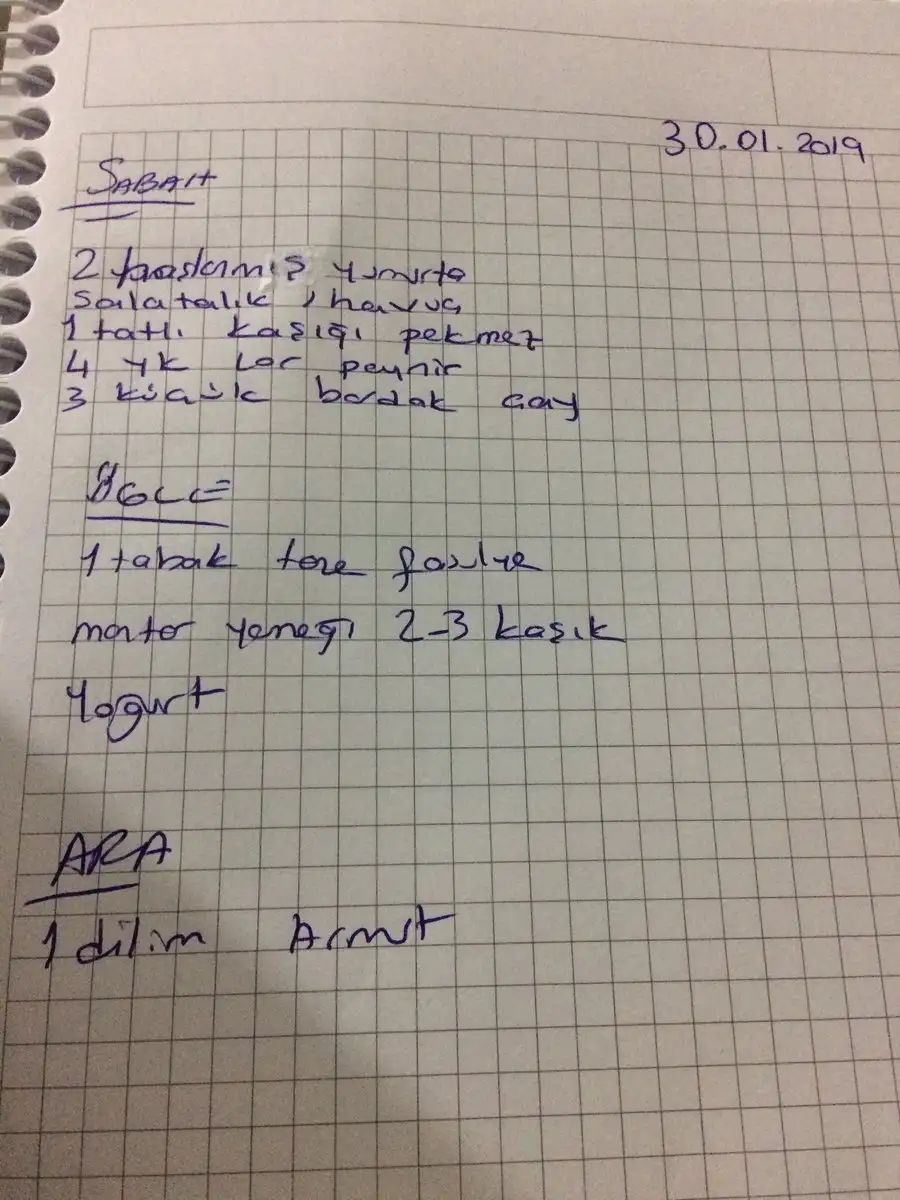 30.01.2019
SABAH
2 haşlanmış yumurta
Salatalık, havuç
1 tatlı kaşığı pekmez
4 yk Lor peynir
3 küçük bardak çay
ÖĞLE
1 tabak taze fasulye
mantar yemeği 2-3 kaşık
Yogurt
ARA
1 dilim Armut